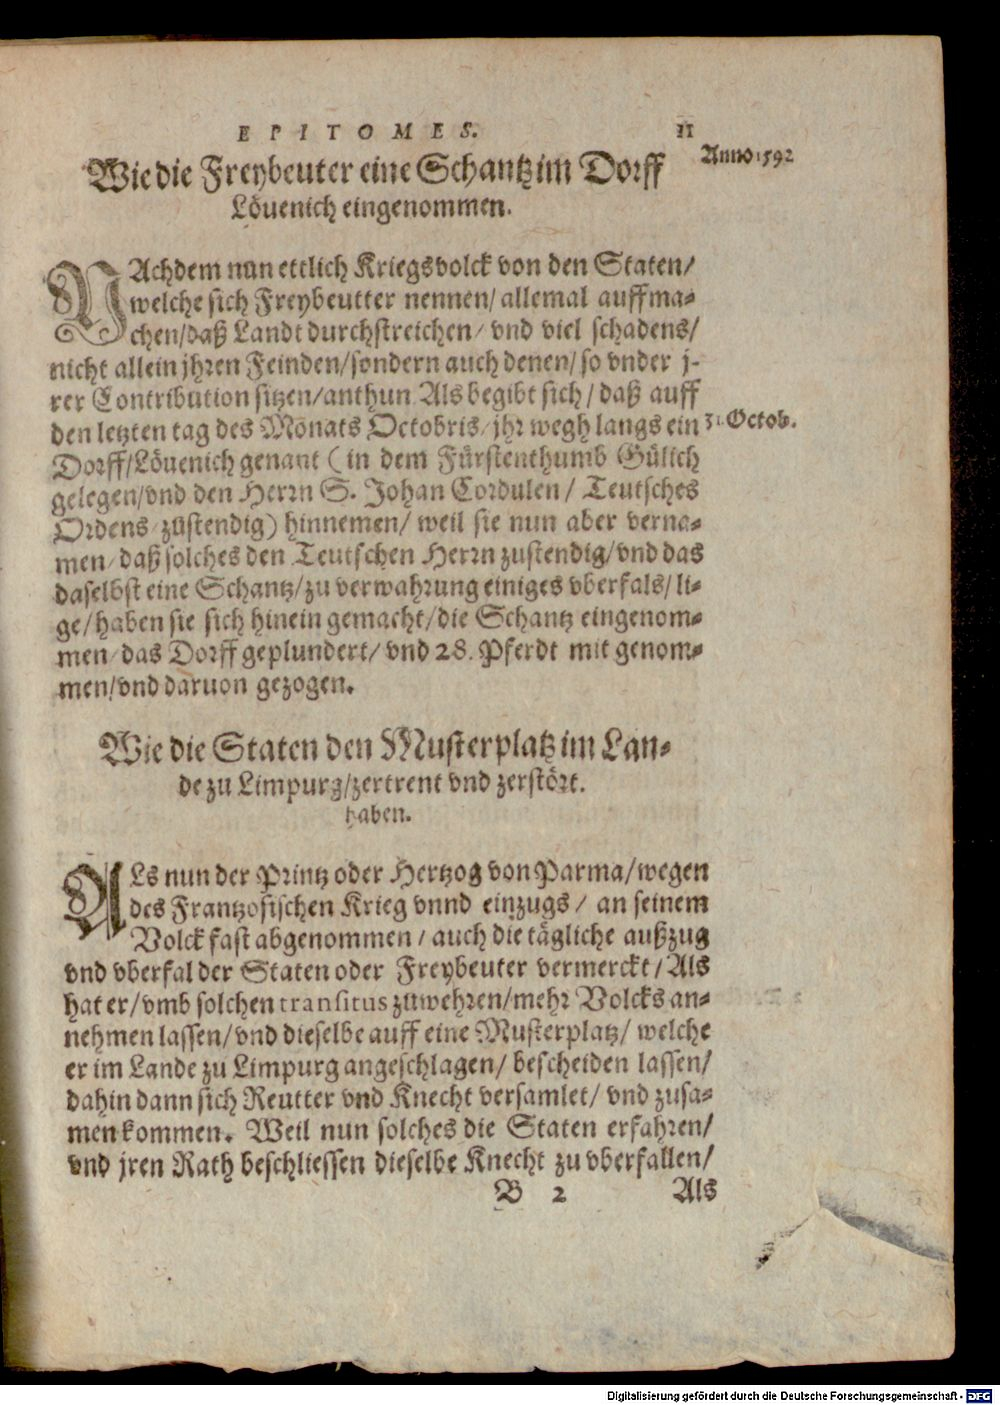 EPITOMES. 11
Anno 1592
Wie die Freybeuter eine Schantz im Dorff
Löuenich eingenommen.
NAchdem nun ettlich Kriegsvolck von den Staten/
welche sich Freybeutter nennen/ allemal auffma-
chen/daß Landt durchstreichen/ vnd viel schadens/
nicht allein jhren Feinden/sondern auch denen/ so vnder j-
rer Contribution sitzen/anthun Als begibt sich/ daß auff
den letzten tag des Monats Octobris/ jhr wegh langs ein
31. Octob.
Dorff/Löuenich genant (in dem Fürstenthumb Gülich
gelegen/vnd den Herrn S. Johan Cordulen/ Teutsches
Ordens zustendig) hinnemen/ weil sie nun aber verna-
men/daß solches den Teutschen Herrn zustendig/vnd das
daselbst eine Schantz/zu verwahrung einiges vberfals/li-
ge/haben sie sich hinein gemacht/die Schantz eingenom-
men/das Dorff geplundert/ vnd 28. Pferdt mit genom-
men/vnd daruon gezogen.
Wie die Staten den Musterplatz im Lan-
de zu Limpurg/zertrent vnd zerstört.
haben.
ALs nun der Printz oder Hertzog von Parma/wegen
des Frantzosischen Krieg vnnd einzugs/ an seinem
Volck fast abgenommen/ auch die tägliche außzug
vnd vberfal der Staten oder Freybeuter vermerckt/ Als
hat er/vmb solchen transitus zuwehren/mehr Volcks an-
nehmen lassen/vnd dieselbe auff eine Musterplatz/ welche
er im Lande zu Limpurg angeschlagen/ bescheiden lassen/
dahin dann sich Reutter vnd Knecht versamlet/ vnd zusa-
men kommen. Weil nun solches die Staten erfahren/
vnd jren Rath beschliessen dieselbe Knecht zu vberfallen/
B 2 Als
Digitalisierung gefördert durch die Deutsche Forschungsgemeinschaft - DFG